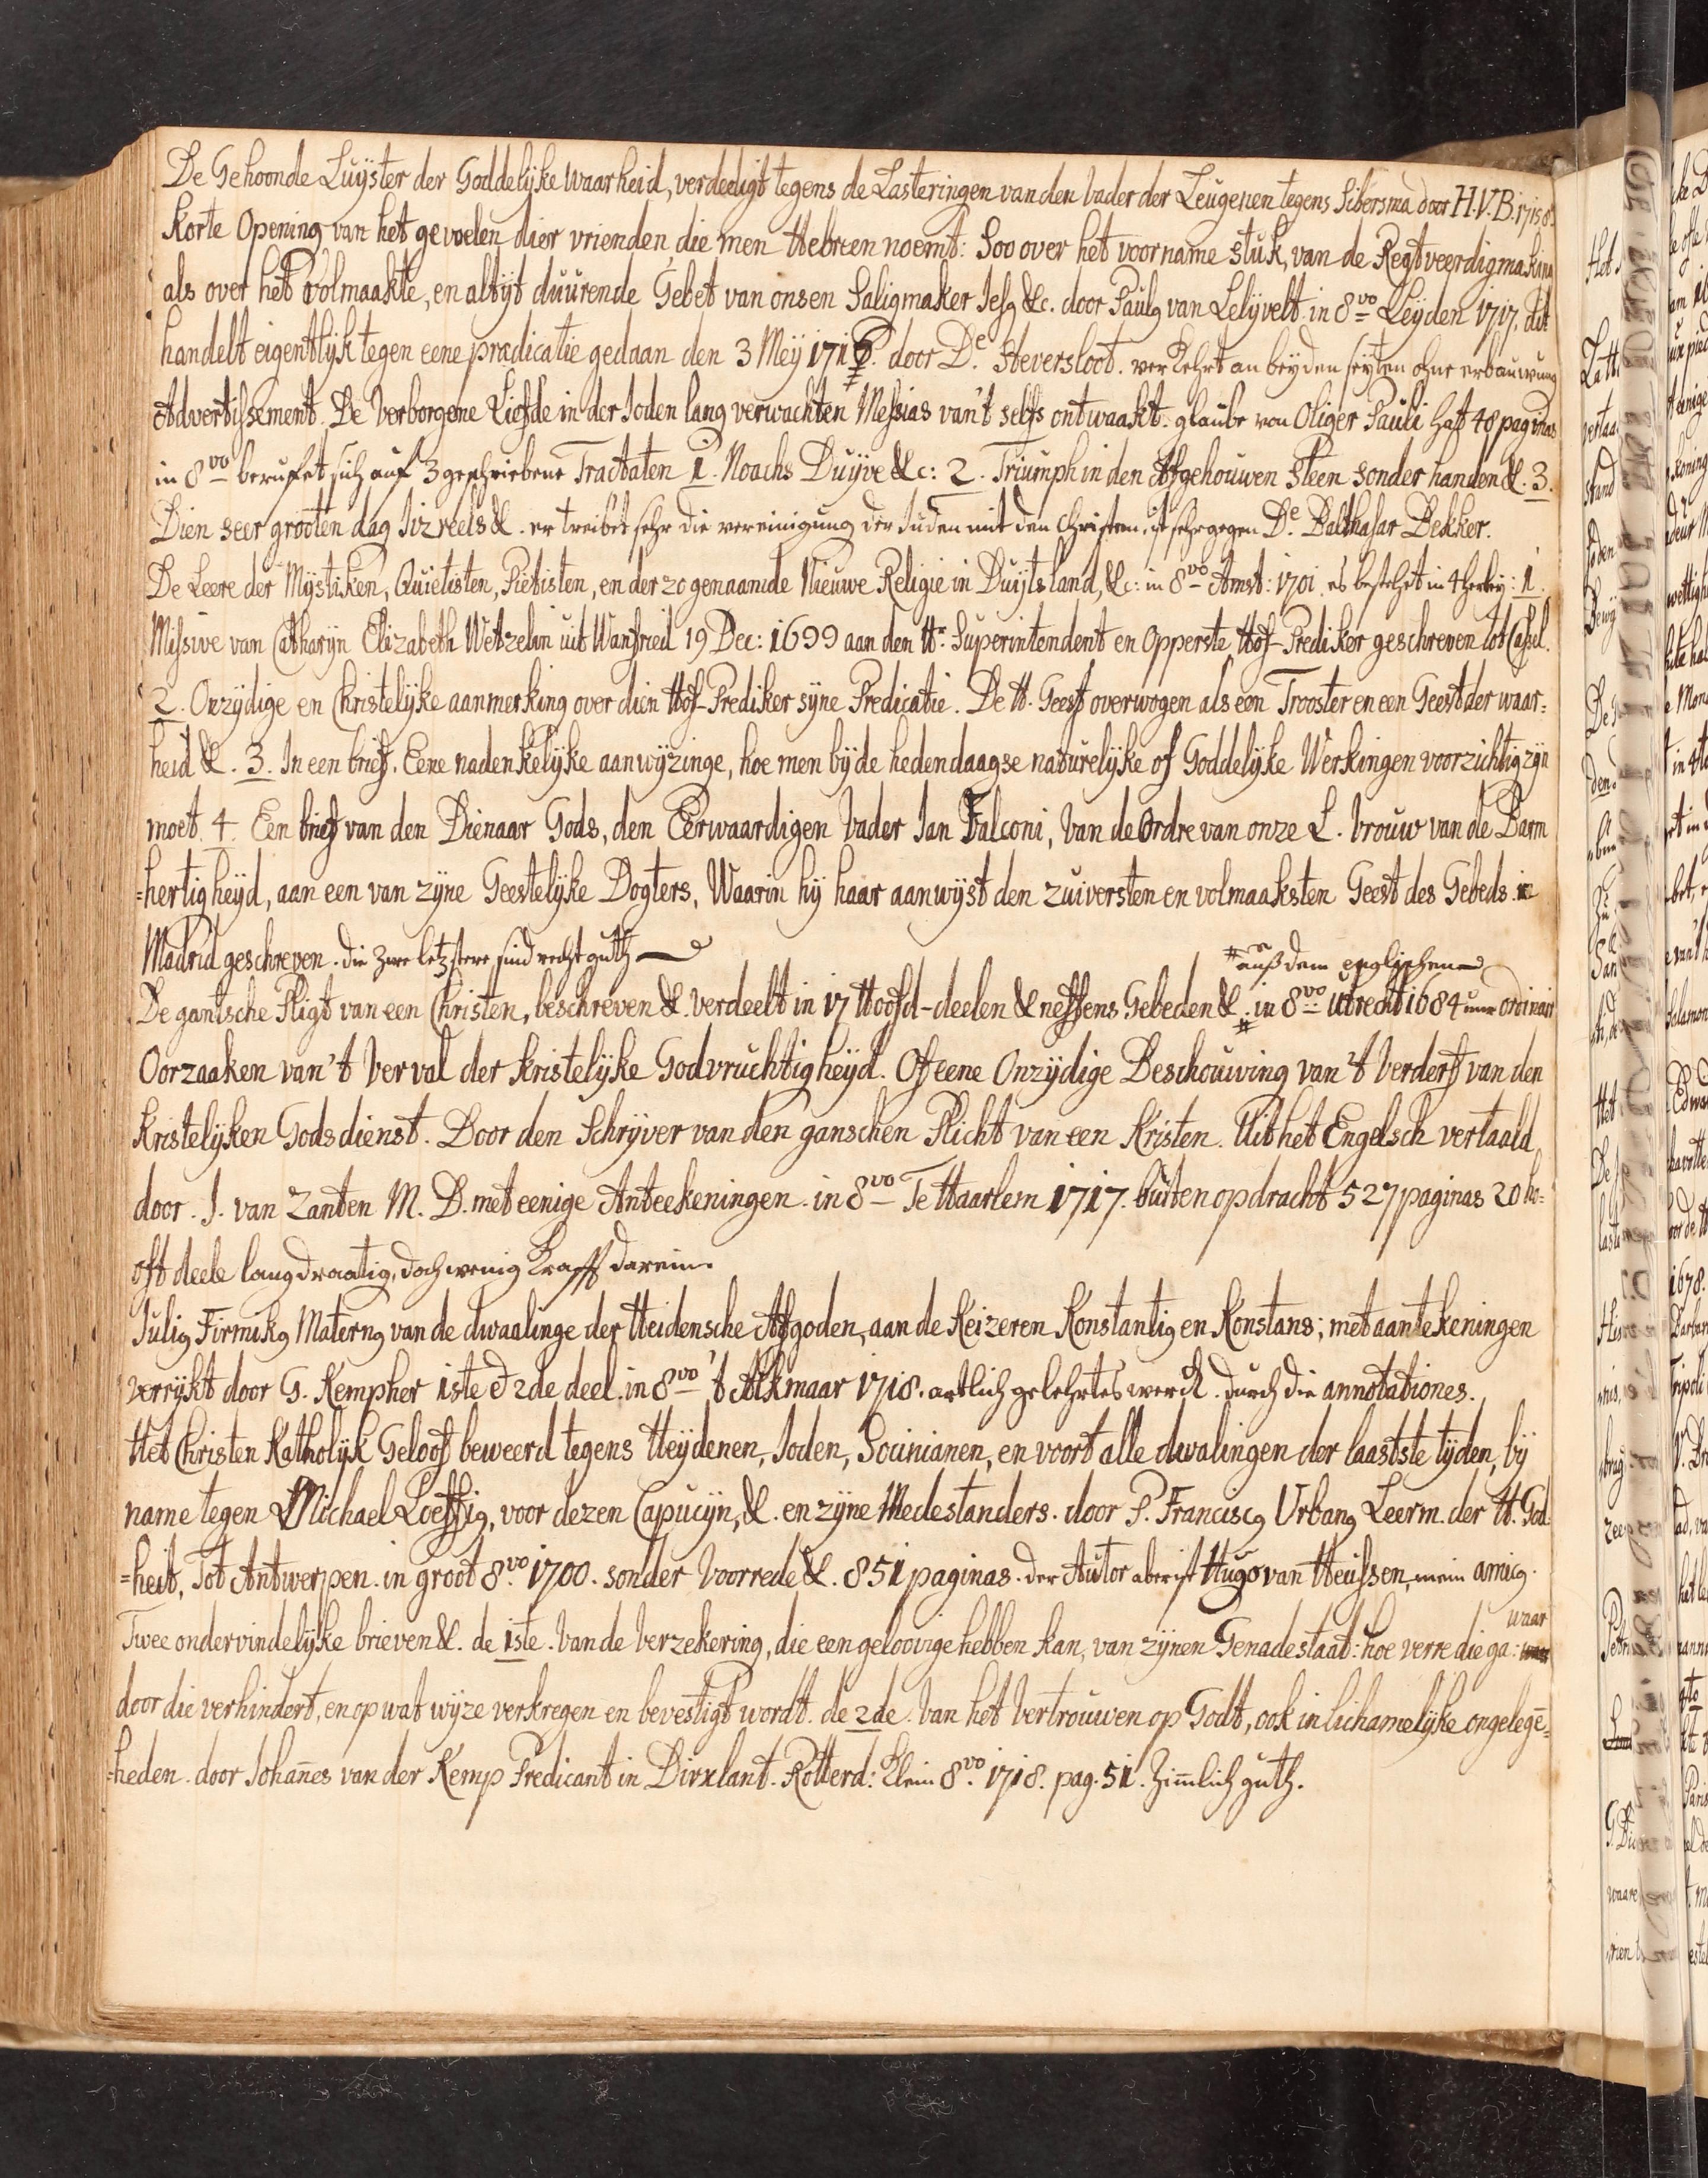 De Gehoonde Luÿster der Goddelÿke waarheid, verdedigt tegens de Lasteringen van den vader der Leugenen tegens Sibersma door H.V.B. 1715 8.
Korte Opening van het gevoelen dier vrienden, die men Hebreen noemt: Soo over het voorname stuk, van de Regtveerdigmaking
als over het volmaakte, en altÿt duurende Gebet van onsen Saligmaker Jesꝰ &c. door Paulꝰ van Lelÿvelt in 8vo Leÿden 1717. dit
handelt eigentlÿk tegen eene prædicatie gedaan den 3 Meÿ 1716. door De. Heversloot. verkehrt an beÿden seÿten ohne erbauwung
Advertissement. De Verborgene Liefde in der Joden lang verwachten Messias van't selfs ontwaakt. glaube von Oliger Pauli hat 40 paginas
in 8vo beruFet sich auf 3 geschriebene Tractaten 1. Noachs Duÿve &c: 2. Triumph in den Afgehouwen Steen sonder handen &. 3.
Dien seer grooten dag Jizreels &. er treibet sehr die vereinigung der Juden mit den Christen, ist sehr gegen De. Balthasar Bekker.
De Leere der Mÿstiken, Quietisten, Pietisten, en der zo genaamde Nieuwe Religie in Duÿtsland, &c: in 8vo Amst: 1701. es bestehet in 4 : 1.
Missive van Catharÿn Elizabeth Wetzelin uit Wanfried 19 Dec: 1699 aan den Hr. Superintendent en Opperste Hof-Prediker geschreven tot Cassel.
2. Onzÿdige en Christelÿke aanmerking over dien Hof-Prediker sÿne Predicatie. De H. Geest overwogen als een Trooster en een Geest der waar=
heid &. 3. In een brief. Eene nadenkelÿke aanwÿzinge, hoe men bÿ de hedendaagse naturelÿke of Goddelÿke Werkingen voorzichtig zÿn
moet. 4. Een brief van den Dienaar Gods, den Eerwaardigen Vader Jan Falconi, Van de Ordre van onze L. Vrouw van de Barm
=hertigheÿd, aan een van zÿne Geestelÿke Dogters, Waarin hÿ haar aanwÿst den zuiversten en volmaaksten Geest des Gebeds. in
Madrid geschreven. die zwe letztere sind recht guth
# auß dem englischen
De gantsche Pligt van een Christen, beschreven &. verdeelt in 17 Hoofd-deelen & neffens Gebeden &. # in 8vo Utrecht 1684 nur ordinair
Oorzaaken van't Verval der Kristelÿke Godvruchtigheÿd. Of eene Onzÿdige Beschouwing van 't Verderf van den
Kristelÿken Godsdienst. Door den Schrÿver van den ganschen Plicht van een Kristen. Uit het Engelsch vertaald
door. J. van Zanten M. D. met eenige Anteekeningen. in 8vo Te Haarlem 1717. buiten opdracht 527 paginas 20 ho=
oft deele langdraatig, doch wenig Krafft darein.
Juliꝰ Firmikꝰ Maternꝰ van de dwaalinge der Heidensche Afgoden, aan de Keizeren Konstantiꝰ en Konstans; met aantekeningen
verrÿkt door G. Kempher 1ste & 2de deel. in 8vo 't Alkmaar 1718. artlich gelehrtes werck. durch die annotationes.
Het Christen Katholÿk Geloof beweerd tegens Heÿdenen, Joden, Socinianen, en voort alle dwalingen der laastste tÿden, bÿ
name tegen Michael Loeffiꝰ, voor dezen Capucÿn, &. en zÿne Medestanders. door P. Franciscꝰ Urbanꝰ Leerm. der H. God
=heit, Tot Antwerpen. in groot 8vo. 1700. sonder Voorrede &. 851 paginas. der Autor aber ist Hugo van Heussen, mein amicꝰ.
Twee ondervindelÿke brieven &. de 1ste. Van de Verzekering, die een geloovige hebben kan, van zÿnen Genadestaat: hoe verre die ga: waar
door die verhindert, en op wat wÿze verkregen en bevestigt wordt. de 2de. Van het Vertrouwen op Godt, ook in lichamelÿke ongelegē=
=heden. door Johan̄es van der Kemp Predicant in Dirxlant. Rotterd: klein 8vo. 1718. pag. 51. Zim̄lich guth.